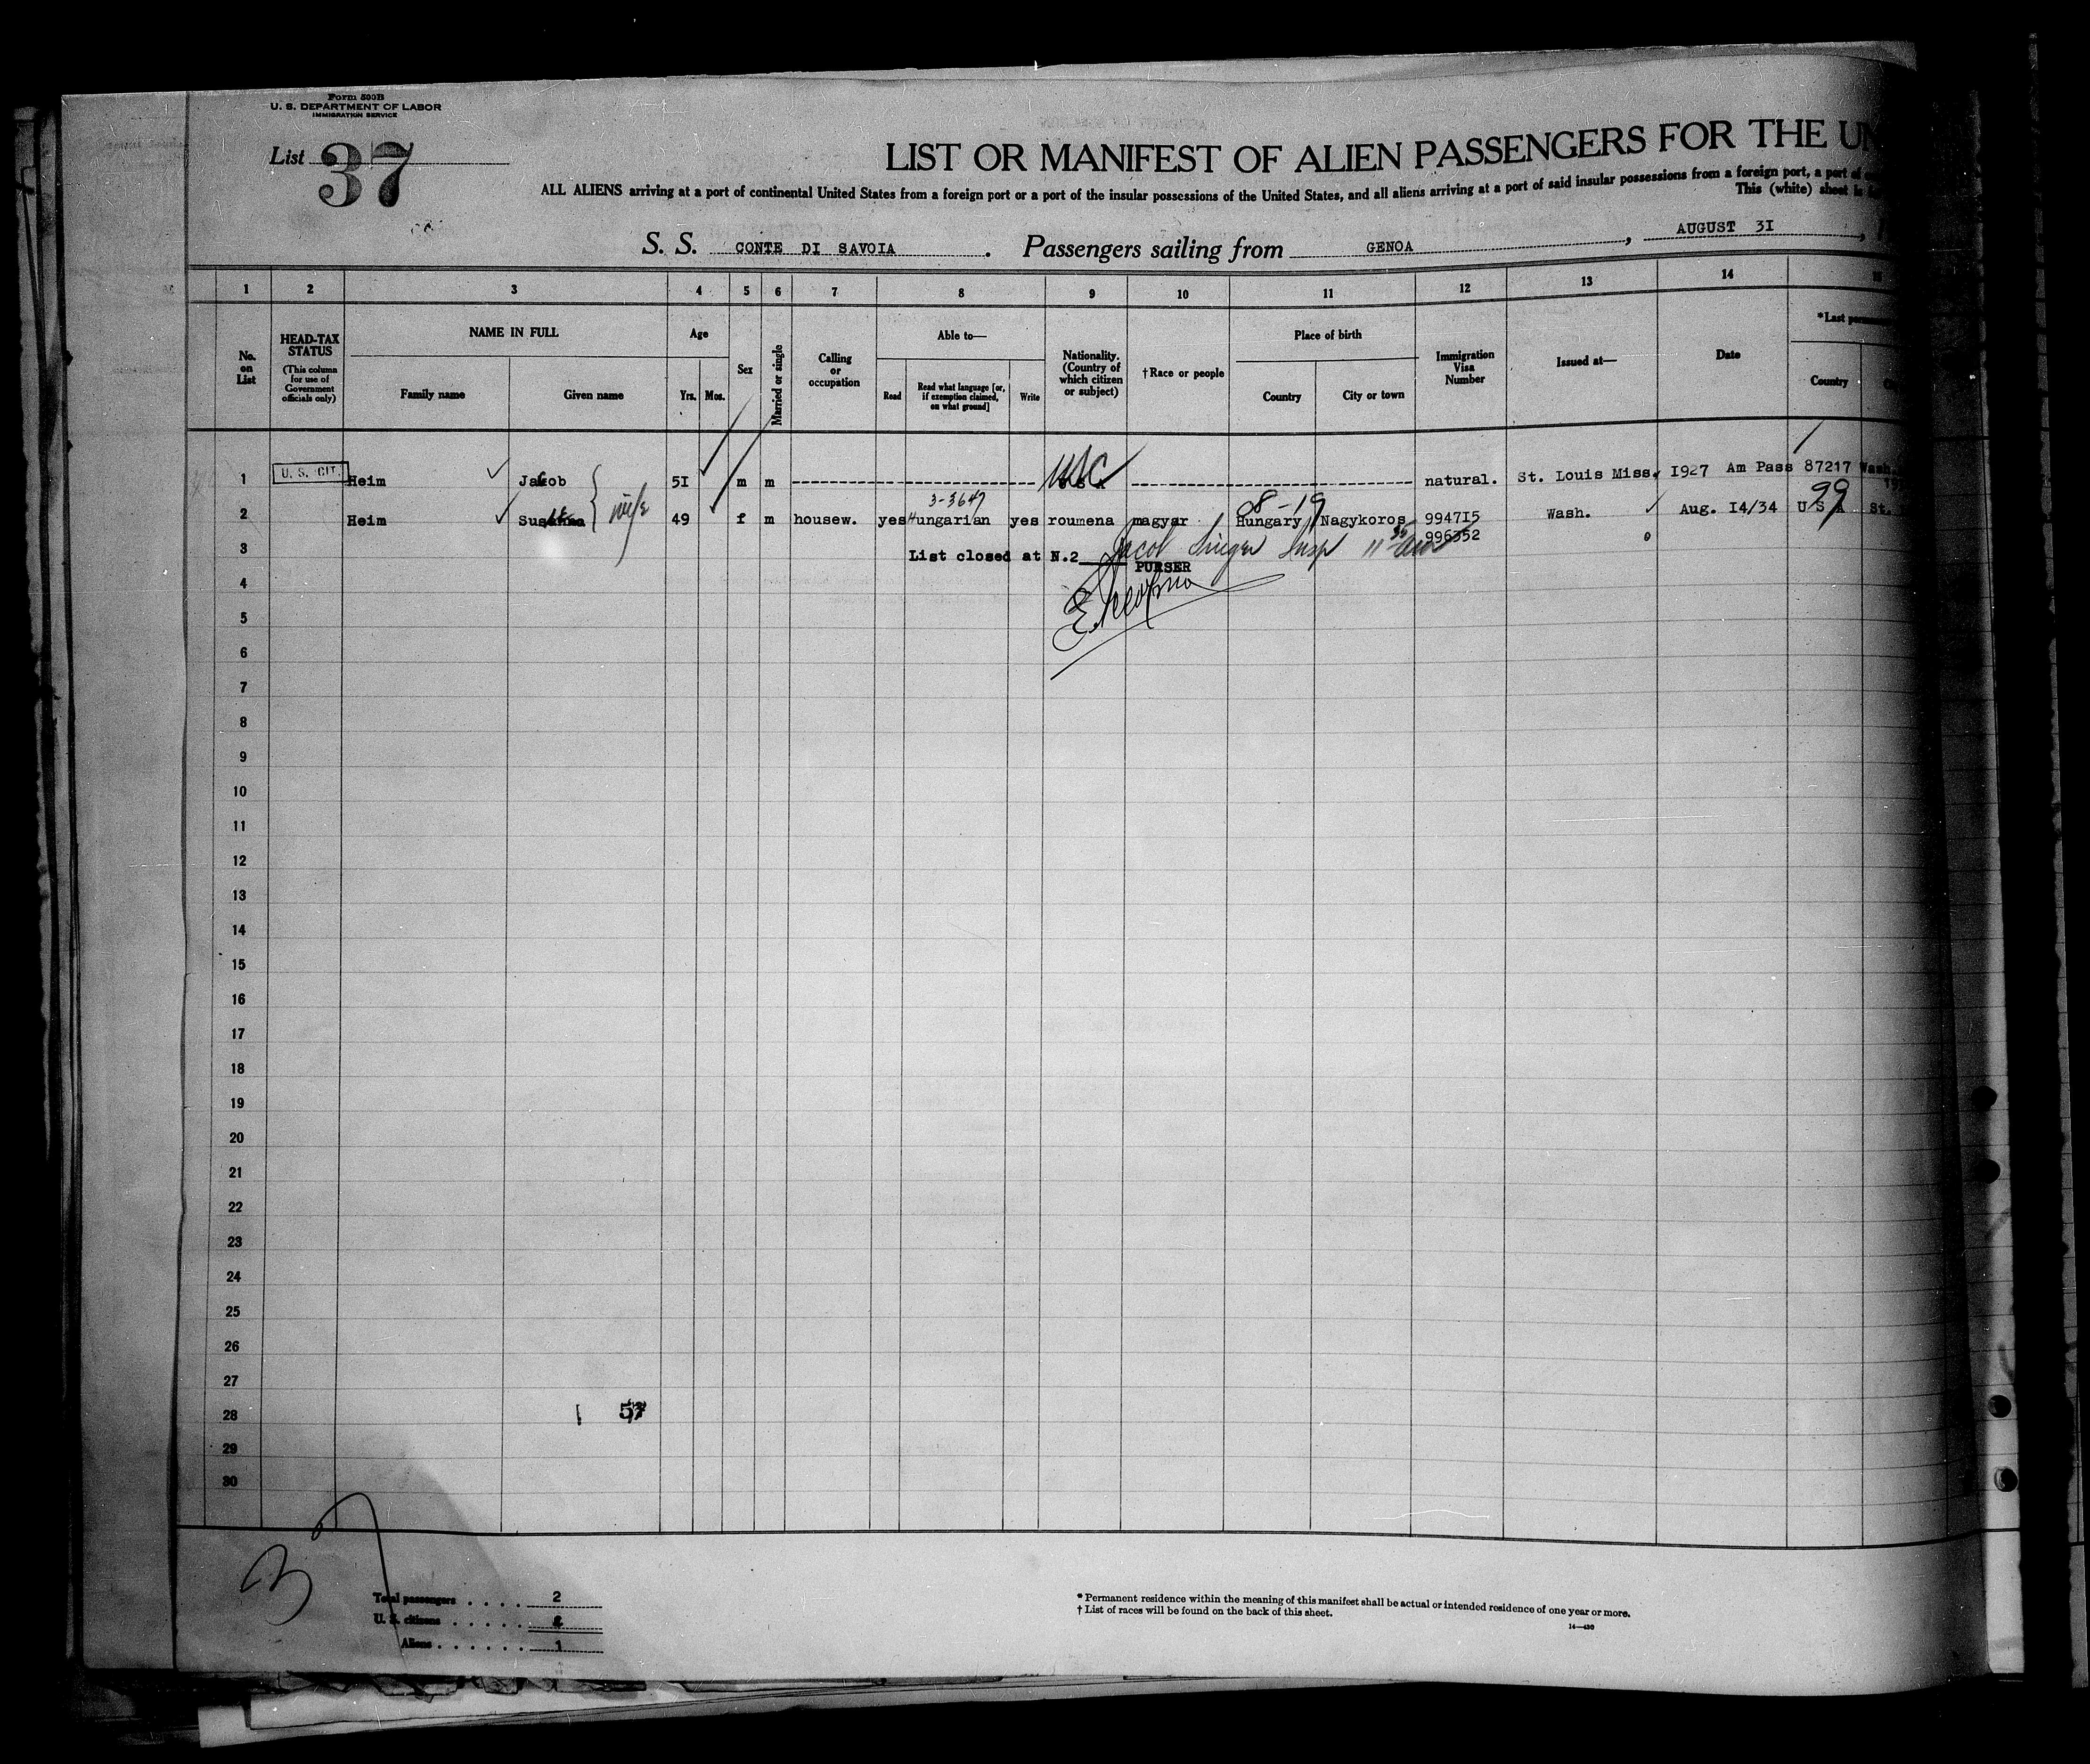 Form 500B
U. S. DEPARTMENT OF LABOR
IMMIGRATION SERVICE
List 37
LIST OR MANIFEST OF ALIEN PASSENGERS FOR THE UN
ALL ALIENS arriving at a port of continental United States from a foreign port or a port of the insular possessions of the United States, and all aliens arriving at a port of said insular possessions from a foreign port, a port of
This (white) sheet is
S. S. CONTE DI SAVOIA. Passengers sailing from GENOA, AUGUST 3I,
1 2 3 4 5 6 7 8 9 10 11 12 13 14 15
No. on List
HEAD-TAX STATUS (This column for use of Government officials only)
NAME IN FULL
Family name Given name
Age
Yrs. Mos.
Sex
Married or single
Calling or occupation
Able to—
Read Read what language [or, if exemption claimed, on what ground] Write
Nationality. (Country of which citizen or subject)
† Race or people
Place of birth
Country City or town
Immigration Visa Number
Issued at—
Date
*Last
Country
1 U. S. CIT. Heim Jacob 5I m m USC natural. St. Louis Miss. I927 Am Pass 87217 Wash.
3-3647 08-19 99
2 Heim wife 49 f m housew. yes Hungarian yes roumena magyar Hungary Nagykoros 9947I5 Wash. Aug. I4/34 U S A St.
996352
3 List closed at N.2 Jacob Singer Insp
PURSER
4
5
6
7
8
9
10
11
12
13
14
15
16
17
18
19
20
21
22
23
24
25
26
27
28
29
30
37
Total passengers . . . . 2
U. S. citizens . . . . .
Aliens . . . . . . 1
* Permanent residence within the meaning of this manifest shall be actual or intended residence of one year or more.
† List of races will be found on the back of this sheet.
14—430